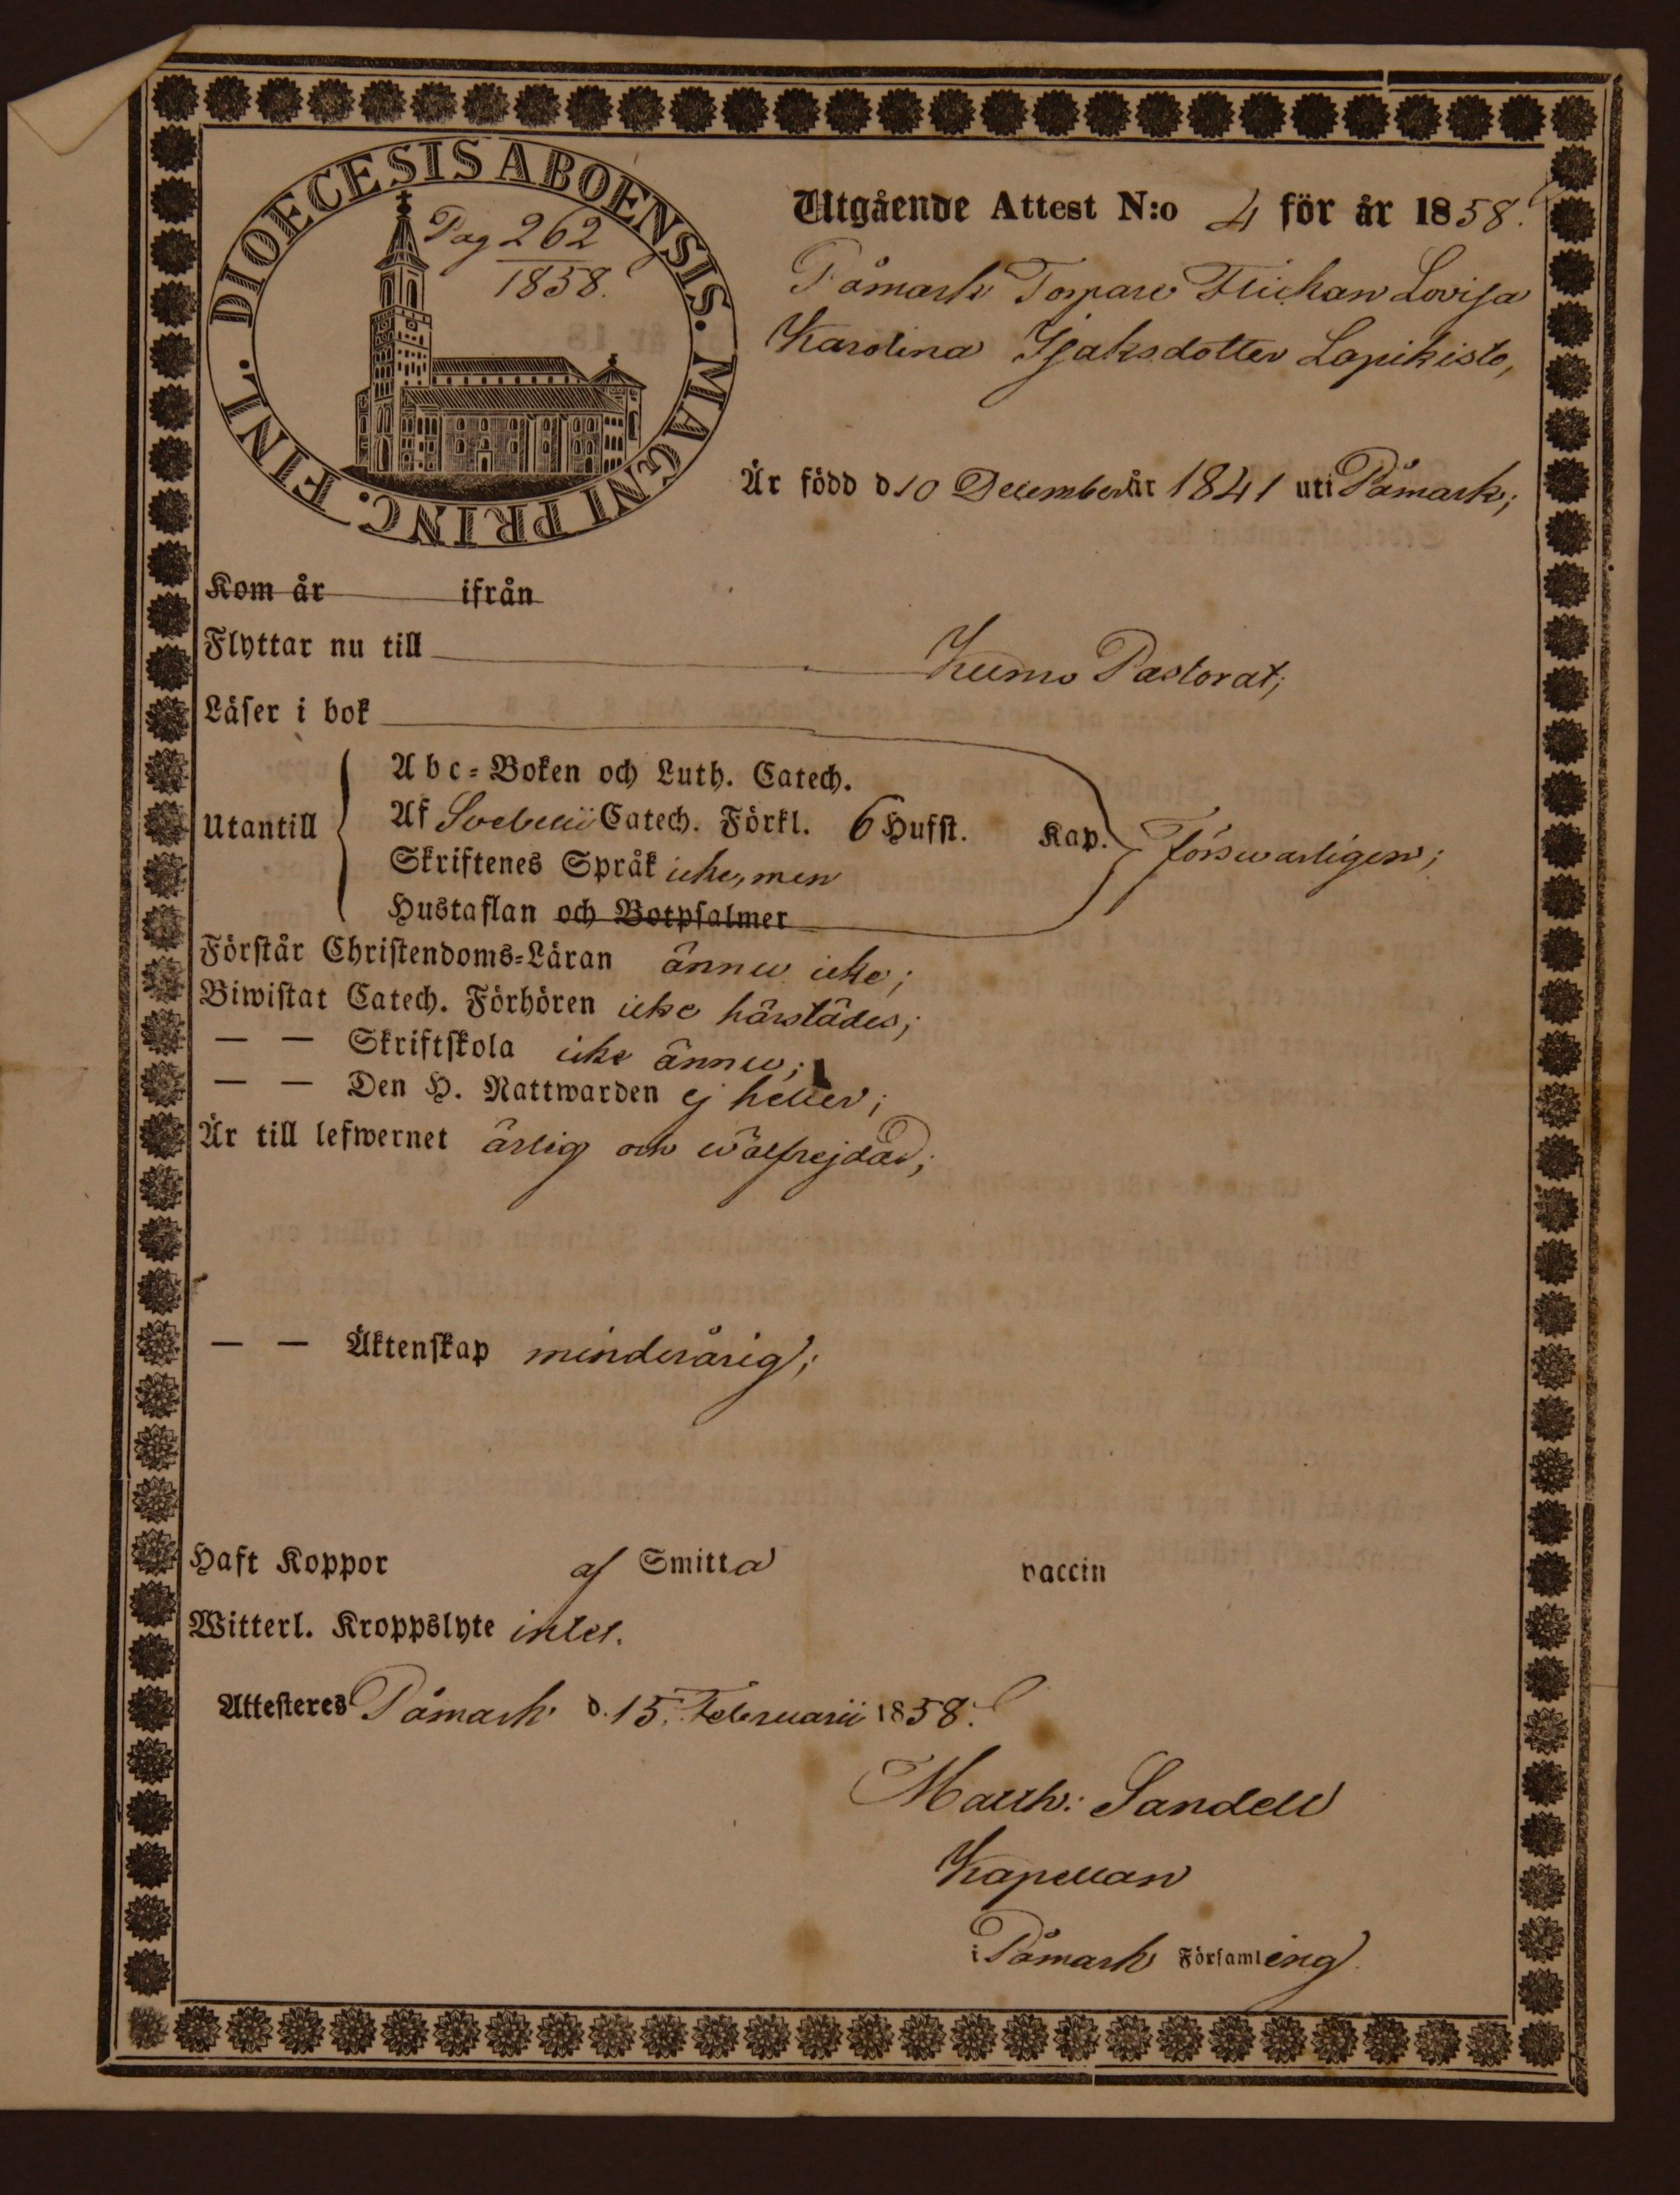 DIOECESIS ABOENSIS. MAGNI PRINC. FINL.
Pag 262
1858.
Utgående Attest N:o 4 för år 1858.
Påmark Torpare Flickan Lovisa
Karolina Isaksdotter Lapikisto,
Är född d 10 December år 1841 uti Påmark;
Kom år ifrån
Flyttar nu till Kumo Pastorat;
Läser i bok
Utantill
Abc-Boken och Luth. Catech.
Af Svebelii Catech. Förkl. 6 Hufst. Kap. försvarligen;
Skriftenes Språk icke, men
Hustaflan och Botpsalmer
Förstår Christendoms-Läran ännu icke;
Biwistat Catech. Förhören icke härstädes;
— — Skriftskola icke ännu;
— — Den H. Nattwarden ej heller;
Är till lefwernet ärlig och wälfrejdad;
— — Äktenskap minderårig;
Haft Koppor af Smitta vaccin
Witterl. Kroppslyte intet.
Attesteres Påmark d. 15 Februarii 1858.
Matth: Sandell
Kapellan
i Påmark Församling